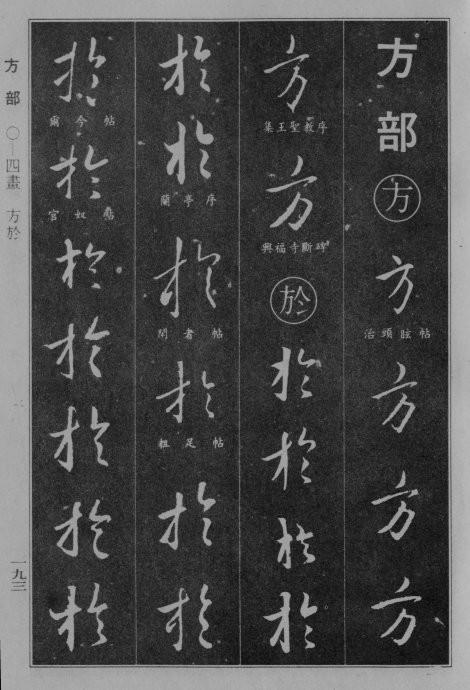 方部
方
方
治頭眩帖
方
方
方
方
集王聖教序
方
興福寺斷碑
於
於
於
於
於
於
於
蘭亭序
於
於
粗足帖
於
於
於
爾今帖
於
官奴帖
於
於
於
於
於
方部 〇—四畫 方於
一九三